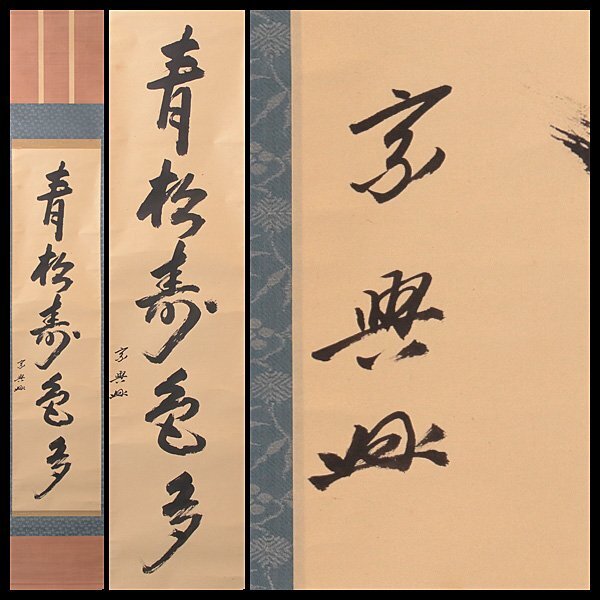 青松寿色多
宗興
青松寿色多
宗興
宗興